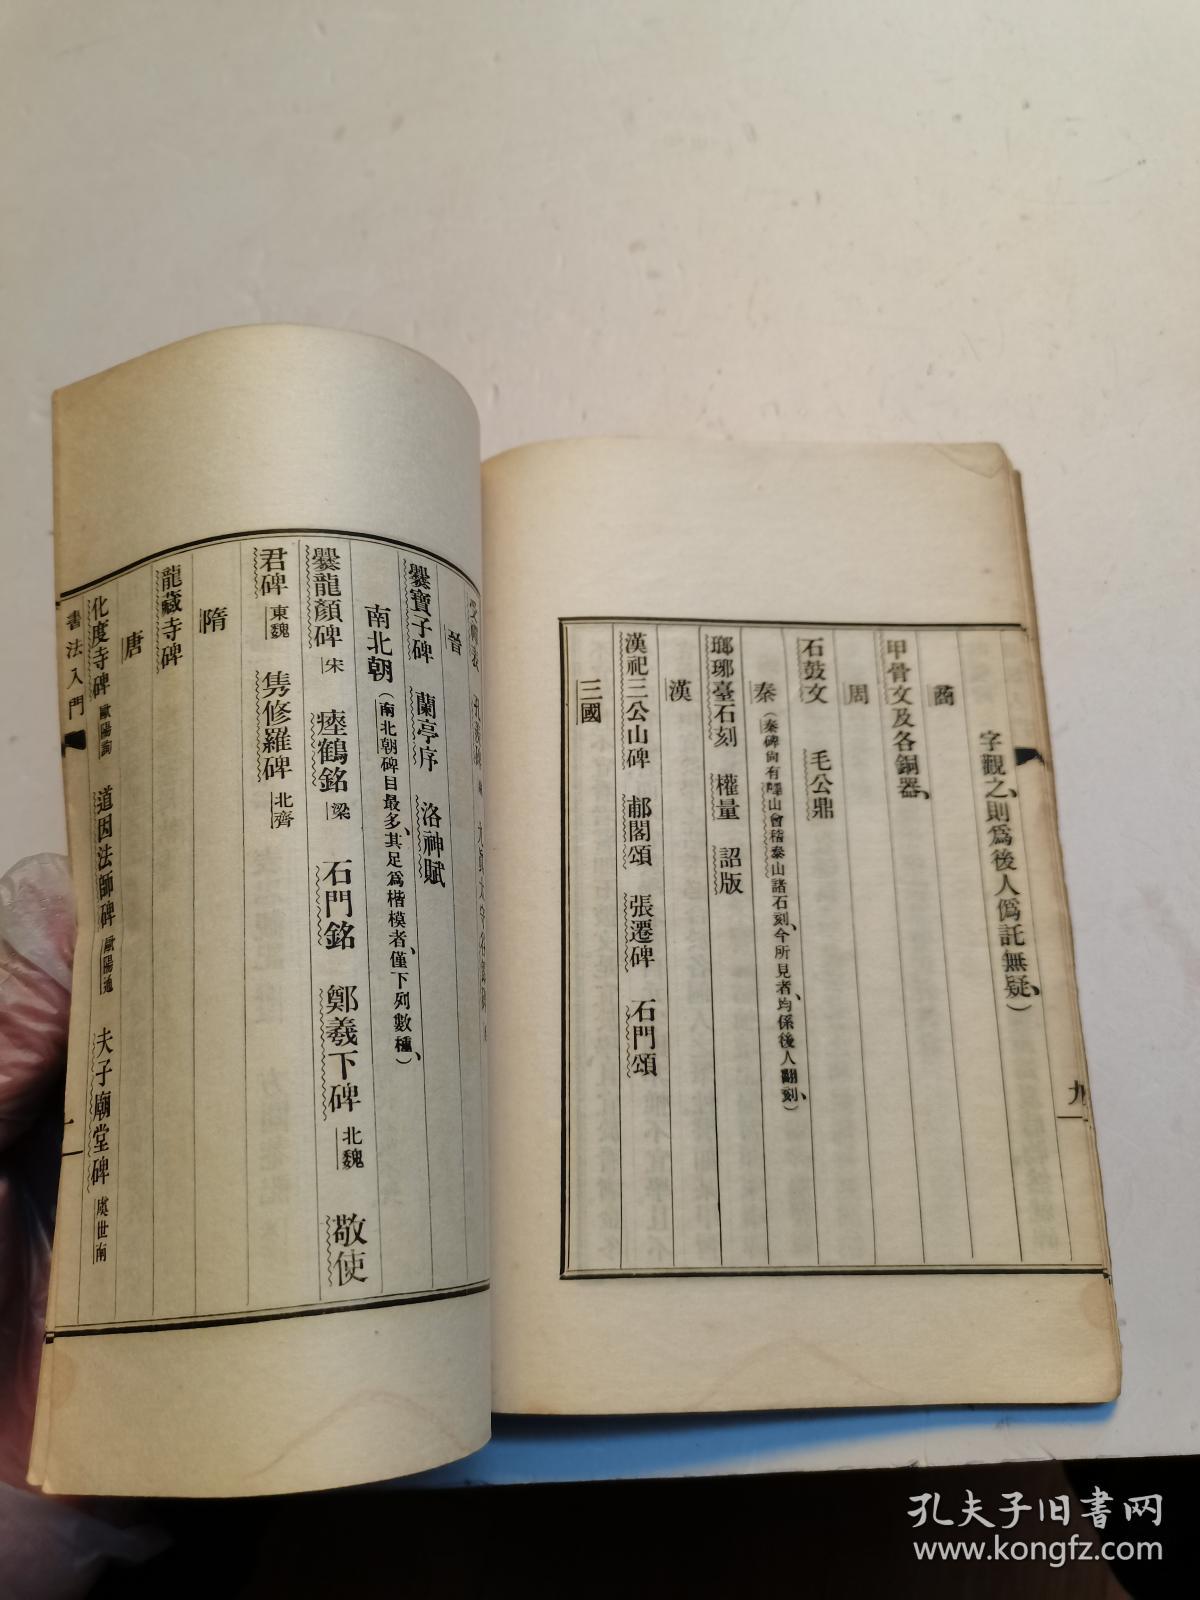 字觀之、則爲後人僞託無疑、）
商
甲骨文及各銅器、
周
石鼓文　毛公鼎
秦（秦碑尙有嶧山會稽泰山諸石刻、今所見者、均係後人翻刻、）
瑯琊臺石刻　權量　詔版
漢
漢祀三公山碑　郙閣頌　張遷碑　石門頌
三國
九
晉
爨寶子碑　蘭亭序　洛神賦
南北朝（南北朝碑目最多、其足爲楷模者、僅下列數種、）
爨龍顏碑 宋　瘞鶴銘 梁　石門銘　鄭羲下碑 北魏　敬使
君碑 東魏　雋修羅碑 北齊
隋
龍藏寺碑
唐
化度寺碑 歐陽詢　道因法師碑 歐陽通　夫子廟堂碑 虞世南
書法入門
孔夫子旧书网
www.kongfz.com